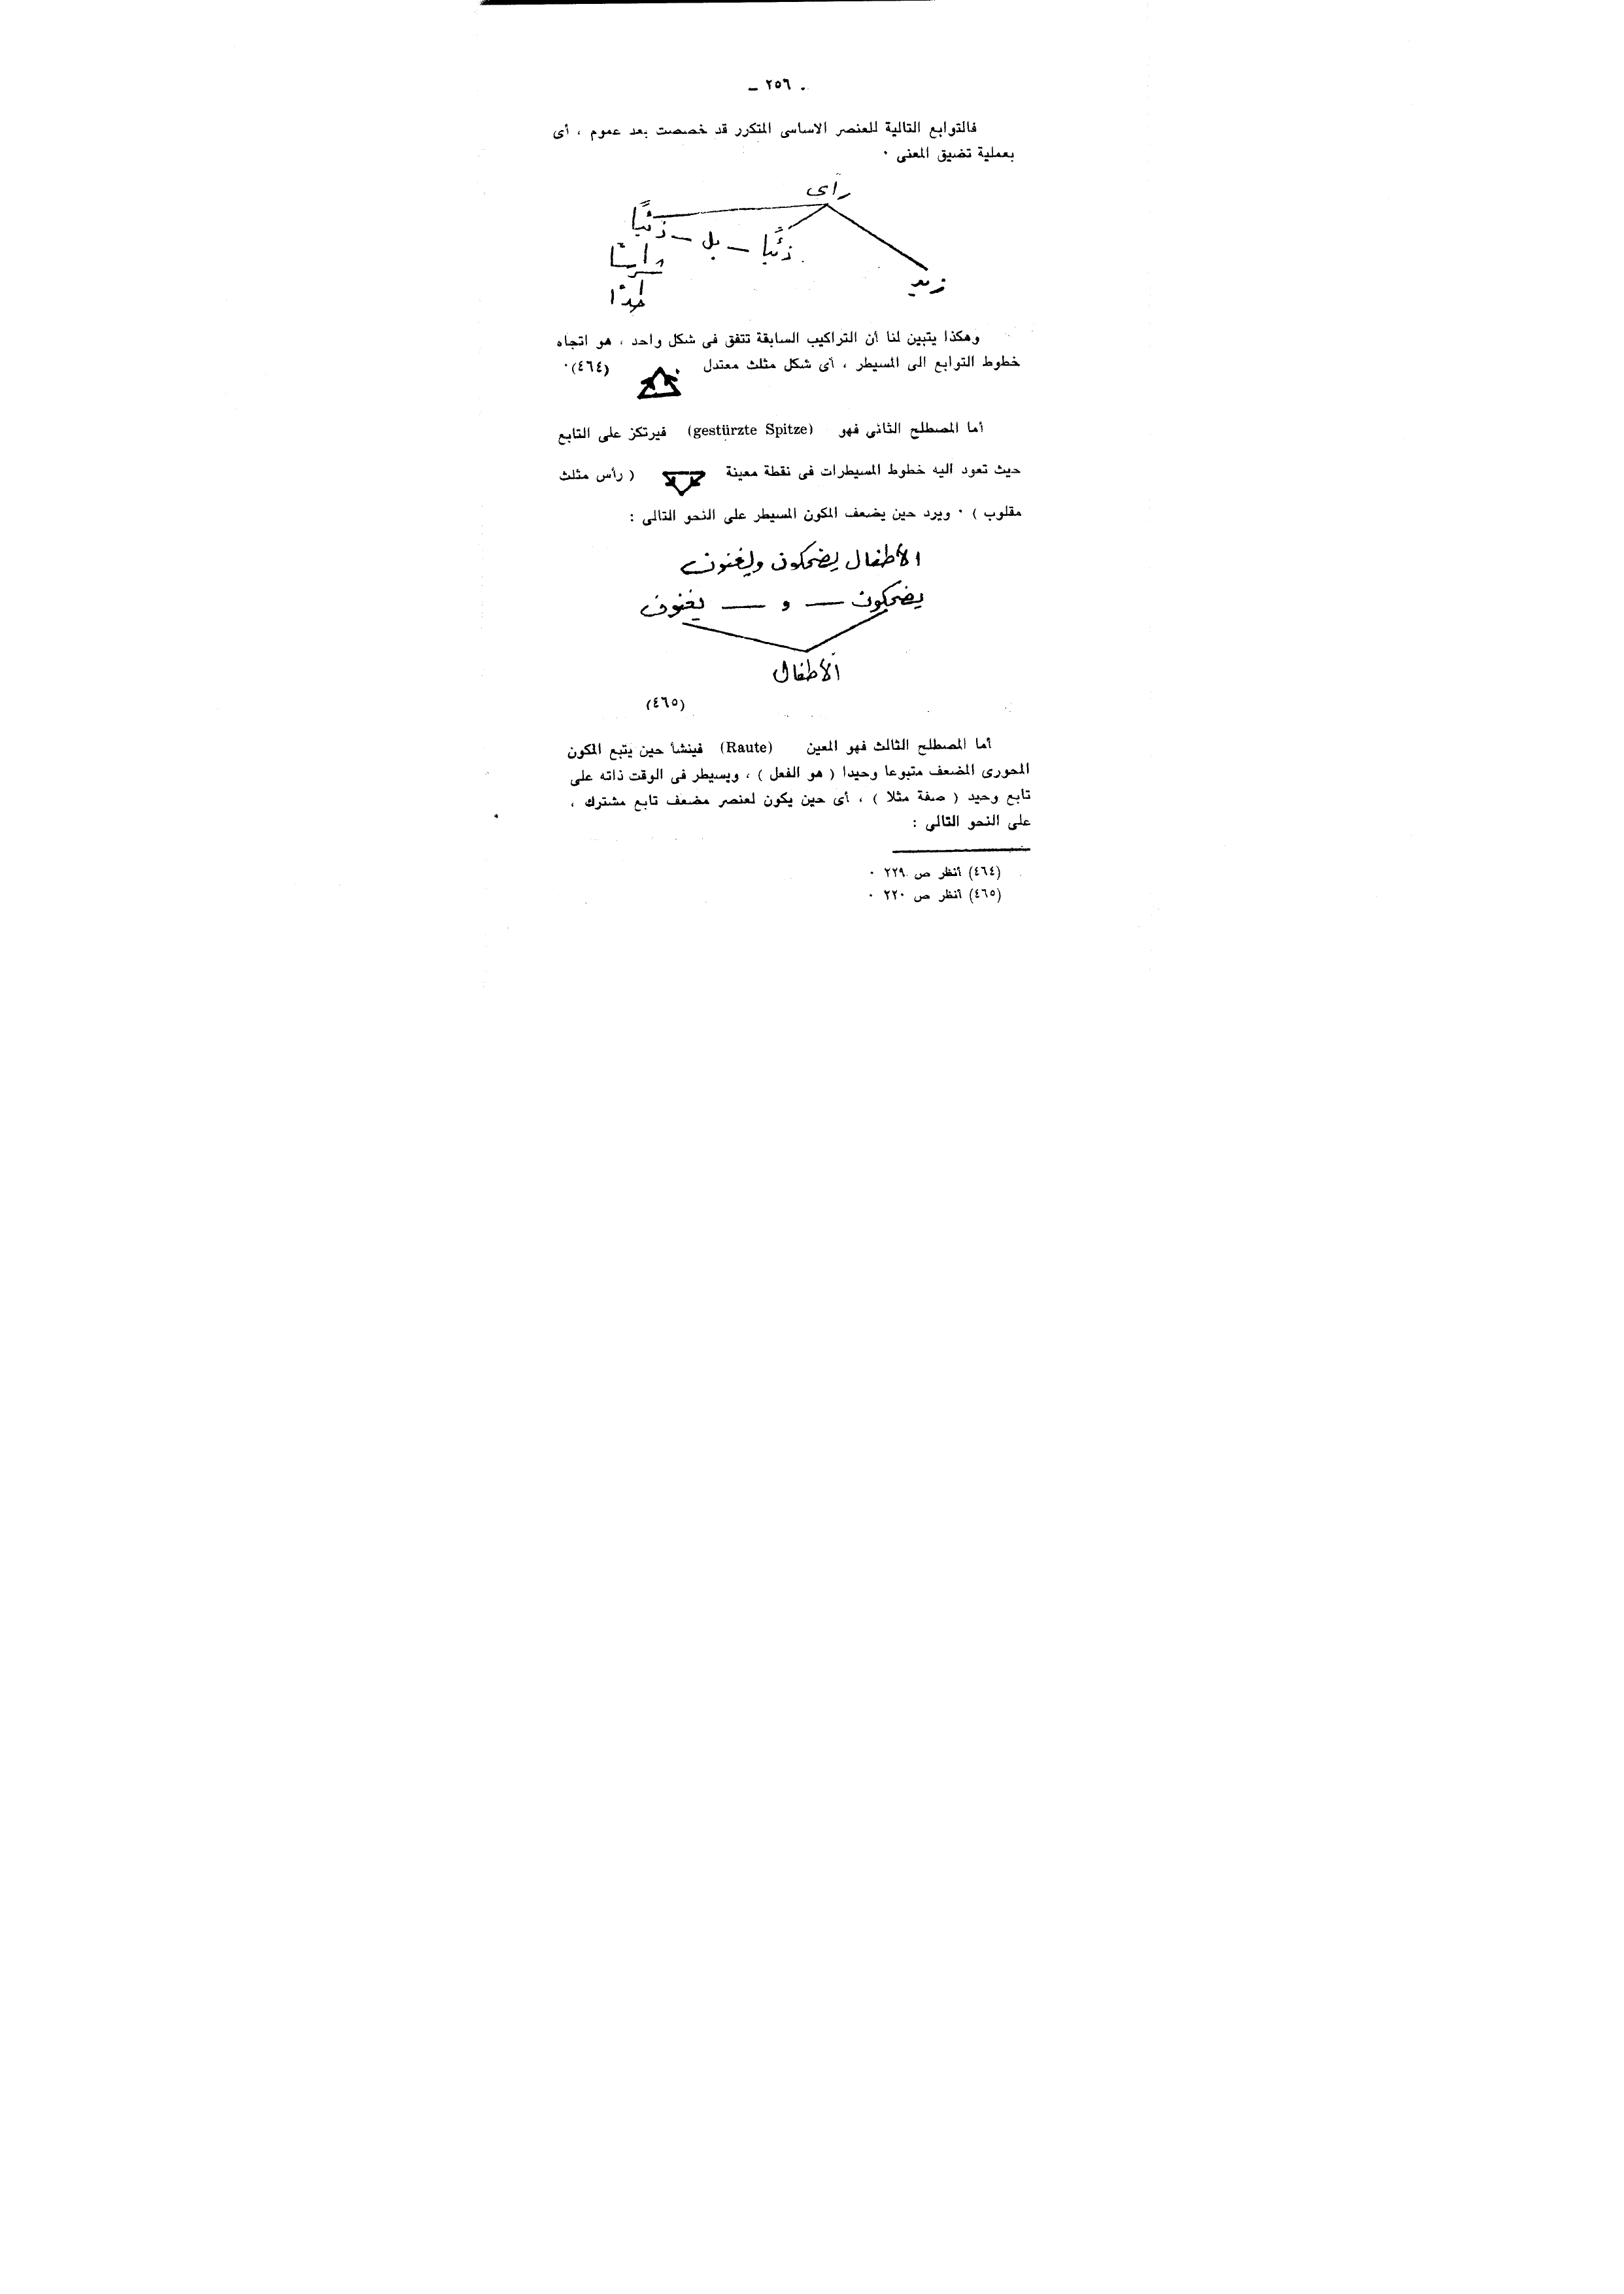 . ٢٥٦ ـ
فالتوابع التالية للعنصر الاساسى المتكرر قد خصصت بعد عموم ، أى
بعملية تضيق المعنى ٠
رأى
ذئبًا ـ بل ـ ذئبًا
زيد
جدًا
وهكذا يتبين لنا أن التراكيب السابقة تتفق فى شكل واحد ، هو اتجاه
خطوط التوابع الى المسيطر ، أى شكل مثلث معتدل (٤٦٤)٠
أما المصطلح الثانى فهو (gestürzte Spitze) فيرتكز على التابع
حيث تعود اليه خطوط المسيطرات فى نقطة معينة ( رأس مثلث
مقلوب ) ٠ ويرد حين يضعف المكون المسيطر على النحو التالى :
الأطفال يضحكون ويغنون
يضحكون — و — يغنون
الأطفال
(٤٦٥)
أما المصطلح الثالث فهو المعين (Raute) فينشأ حين يتبع المكون
المحورى المضعف متبوعا وحيدا ( هو الفعل ) ، ويسيطر فى الوقت ذاته على
تابع وحيد ( صفة مثلا ) ، أى حين يكون لعنصر مضعف تابع مشترك ،
على النحو التالى :
(٤٦٤) أنظر ص ٢٢٩ ٠
(٤٦٥) أنظر ص ٢٢٠ ٠